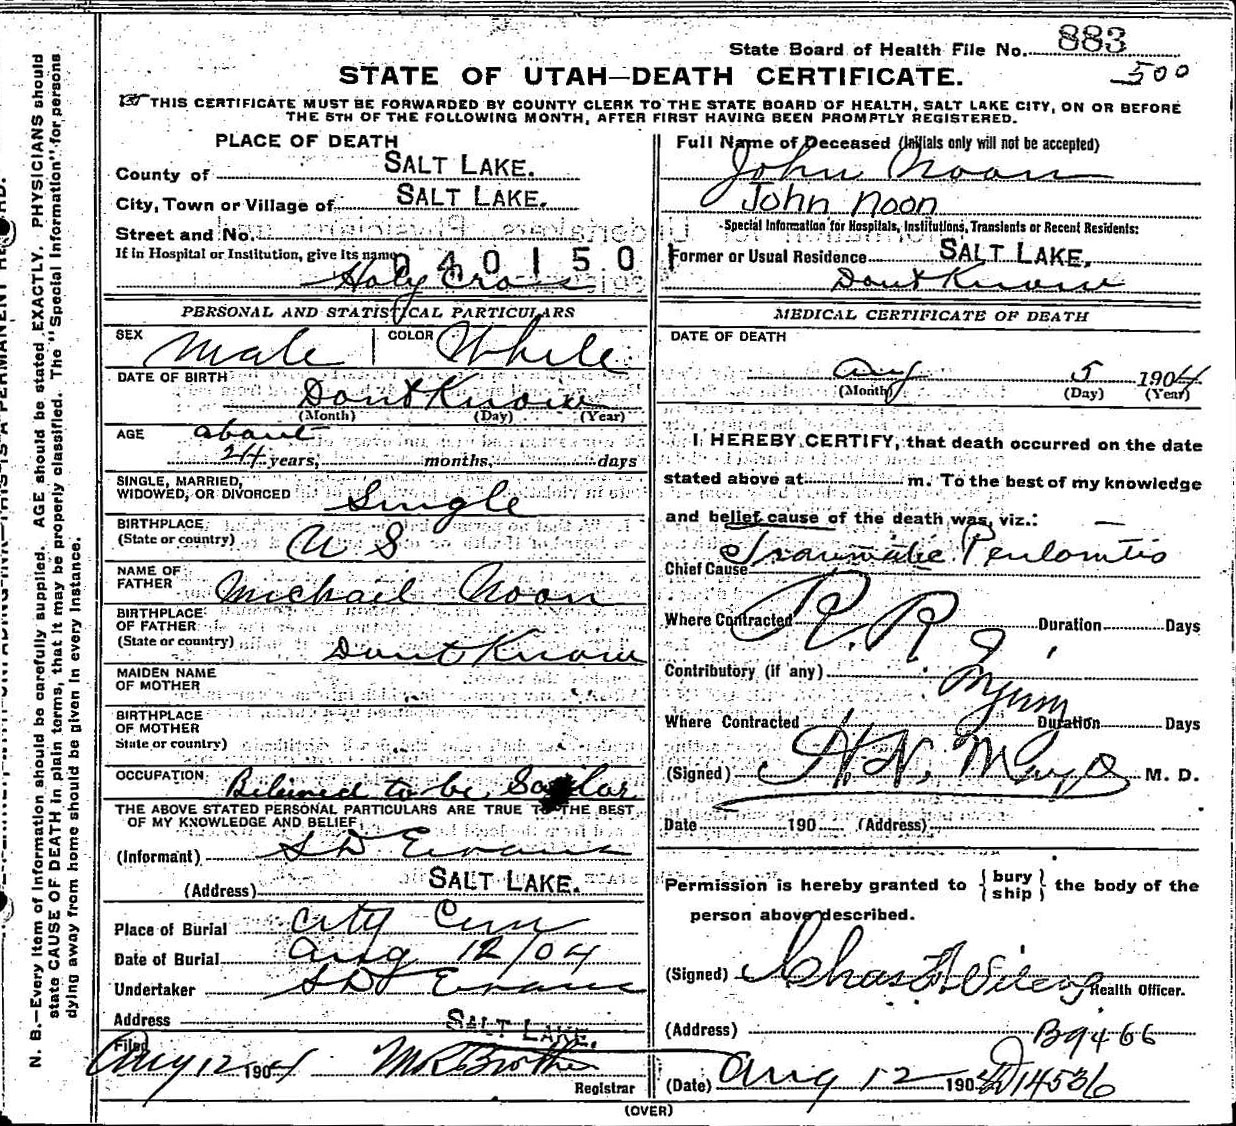 State Board of Health File No. 883
500
STATE OF UTAH—DEATH CERTIFICATE.
THIS CERTIFICATE MUST BE FORWARDED BY COUNTY CLERK TO THE STATE BOARD OF HEALTH, SALT LAKE CITY, ON OR BEFORE
THE 5TH OF THE FOLLOWING MONTH, AFTER FIRST HAVING BEEN PROMPTLY REGISTERED.
PLACE OF DEATH
County of SALT LAKE.
City, Town or Village of SALT LAKE.
Street and No.
If in Hospital or Institution, give its name 0401501
Holy Cross
PERSONAL AND STATISTICAL PARTICULARS
SEX Male COLOR White
DATE OF BIRTH
Dont Know
(Month) (Day) (Year)
AGE about
24 years, months, days
SINGLE, MARRIED,
WIDOWED, OR DIVORCED Single
BIRTHPLACE
(State or country) U S
NAME OF
FATHER Michail Noon
BIRTHPLACE
OF FATHER
(State or country) Dont Know
MAIDEN NAME
OF MOTHER
BIRTHPLACE
OF MOTHER
State or country)
OCCUPATION Belived to be Sailor
THE ABOVE STATED PERSONAL PARTICULARS ARE TRUE TO THE BEST
OF MY KNOWLEDGE AND BELIEF
(Informant) S D Evans
(Address) SALT LAKE.
Place of Burial City Cem
Date of Burial Aug 12/04
Undertaker S D Evans
Address SALT LAKE.
Filed Aug 12 1904
Registrar
Full Name of Deceased (Initials only will not be accepted)
John Noon
John Noon
Special Information for Hospitals, Institutions, Transients or Recent Residents:
Former or Usual Residence SALT LAKE.
Dont Know
MEDICAL CERTIFICATE OF DEATH
DATE OF DEATH
Aug 5 1904
(Month) (Day) (Year)
I HEREBY CERTIFY, that death occurred on the date
stated above at m. To the best of my knowledge
and belief cause of the death was, viz.:
Chief Cause Traumatic Peritonitis
Where Contracted R. R. Duration Days
Contributory (if any) Injury
Where Contracted Duration Days
(Signed) H. N. Mayo M. D.
Date 190 (Address)
Permission is hereby granted to {bury ship} the body of the
person above described.
(Signed) Health Officer.
(Address) B9466
(Date) Aug 12 1904 D14536
(OVER)
N. B.—Every item of information should be carefully supplied. AGE should be stated EXACTLY. PHYSICIANS should
state CAUSE OF DEATH in plain terms, that it may be properly classified. The "Special Information" for persons
dying away from home should be given in every instance.